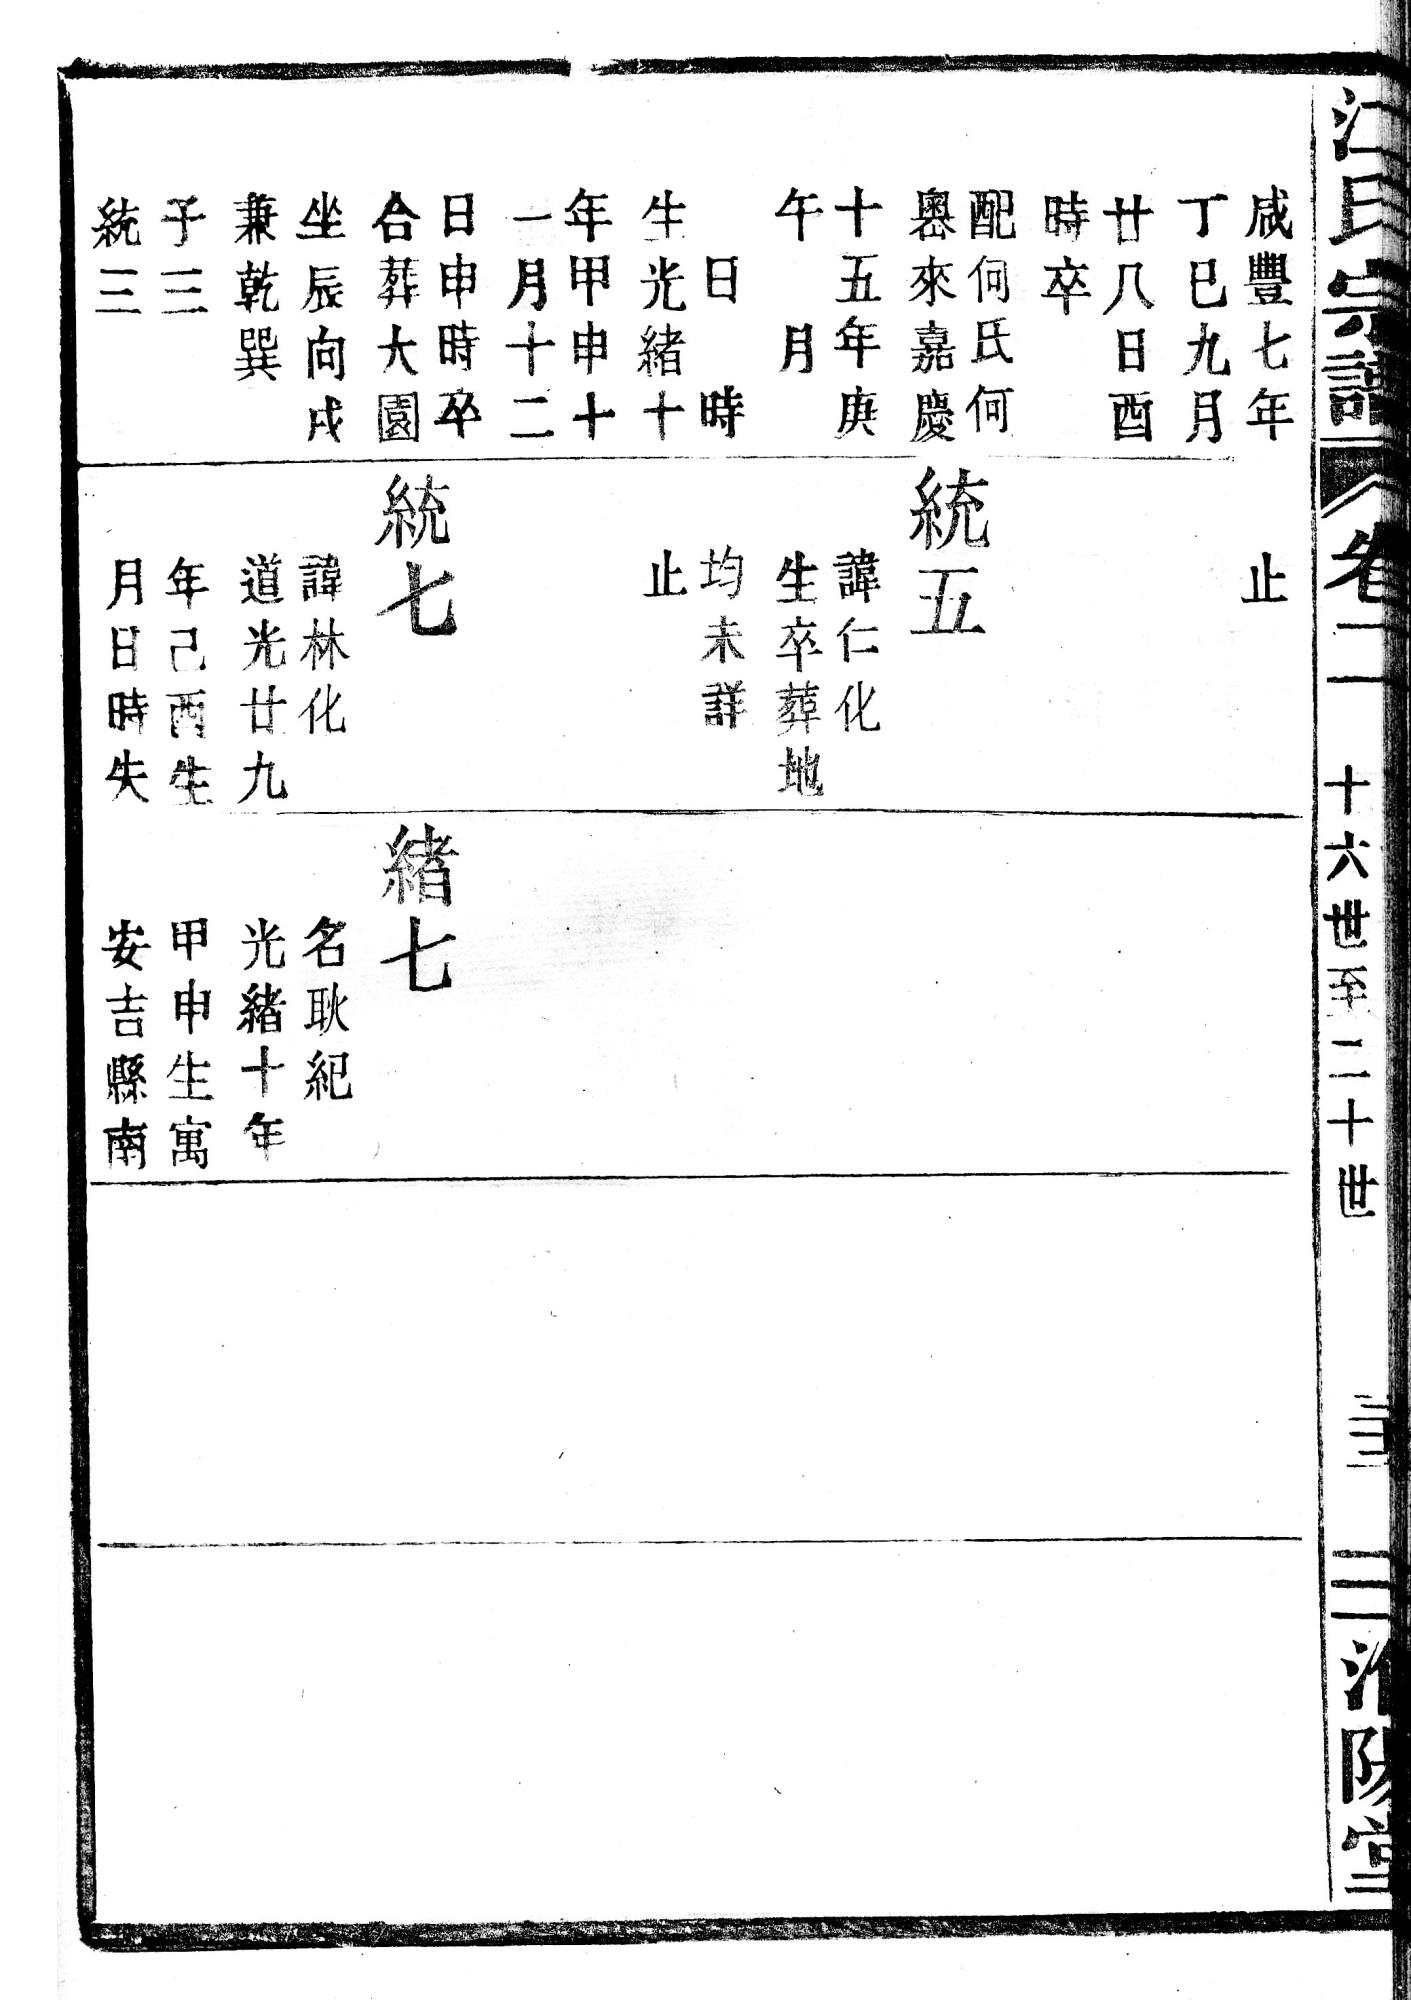 江氏宗譜 卷二 十六世至二十世 淮陽堂
咸豐七年
丁巳九月
廿八日酉
時卒
配何氏何
嶴來嘉慶
十五年庚
午 月
日 時
生光緒十
年甲申十
一月十二
日申時卒
合葬大園
坐辰向戌
兼乾巽
子三
統三
止
統五
諱仁化
生卒葬地
均未詳
止
統七
諱林化
道光廿九
年己酉生
月日時失
緒七
名耿紀
光緒十年
甲申生寓
安吉縣南